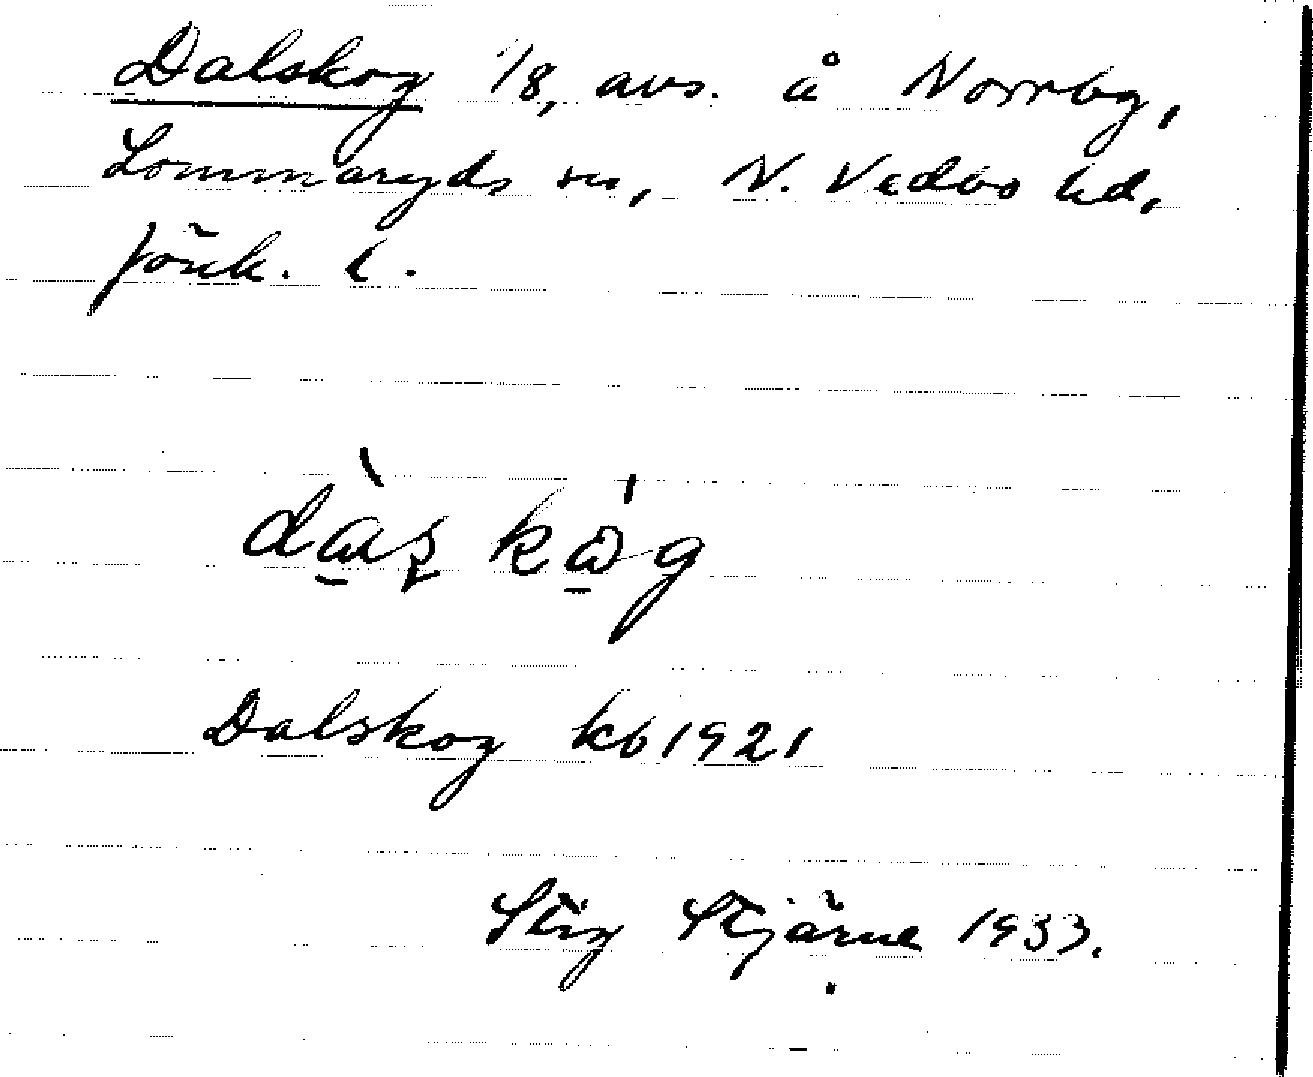 Dalskog 1/8, avs. å Norrby,
Lommaryds sn, N. Vedbo hd,
Jönk. l.
dàʂ kóg
Dalskog kb 1921
Stig Stjärne 1933.